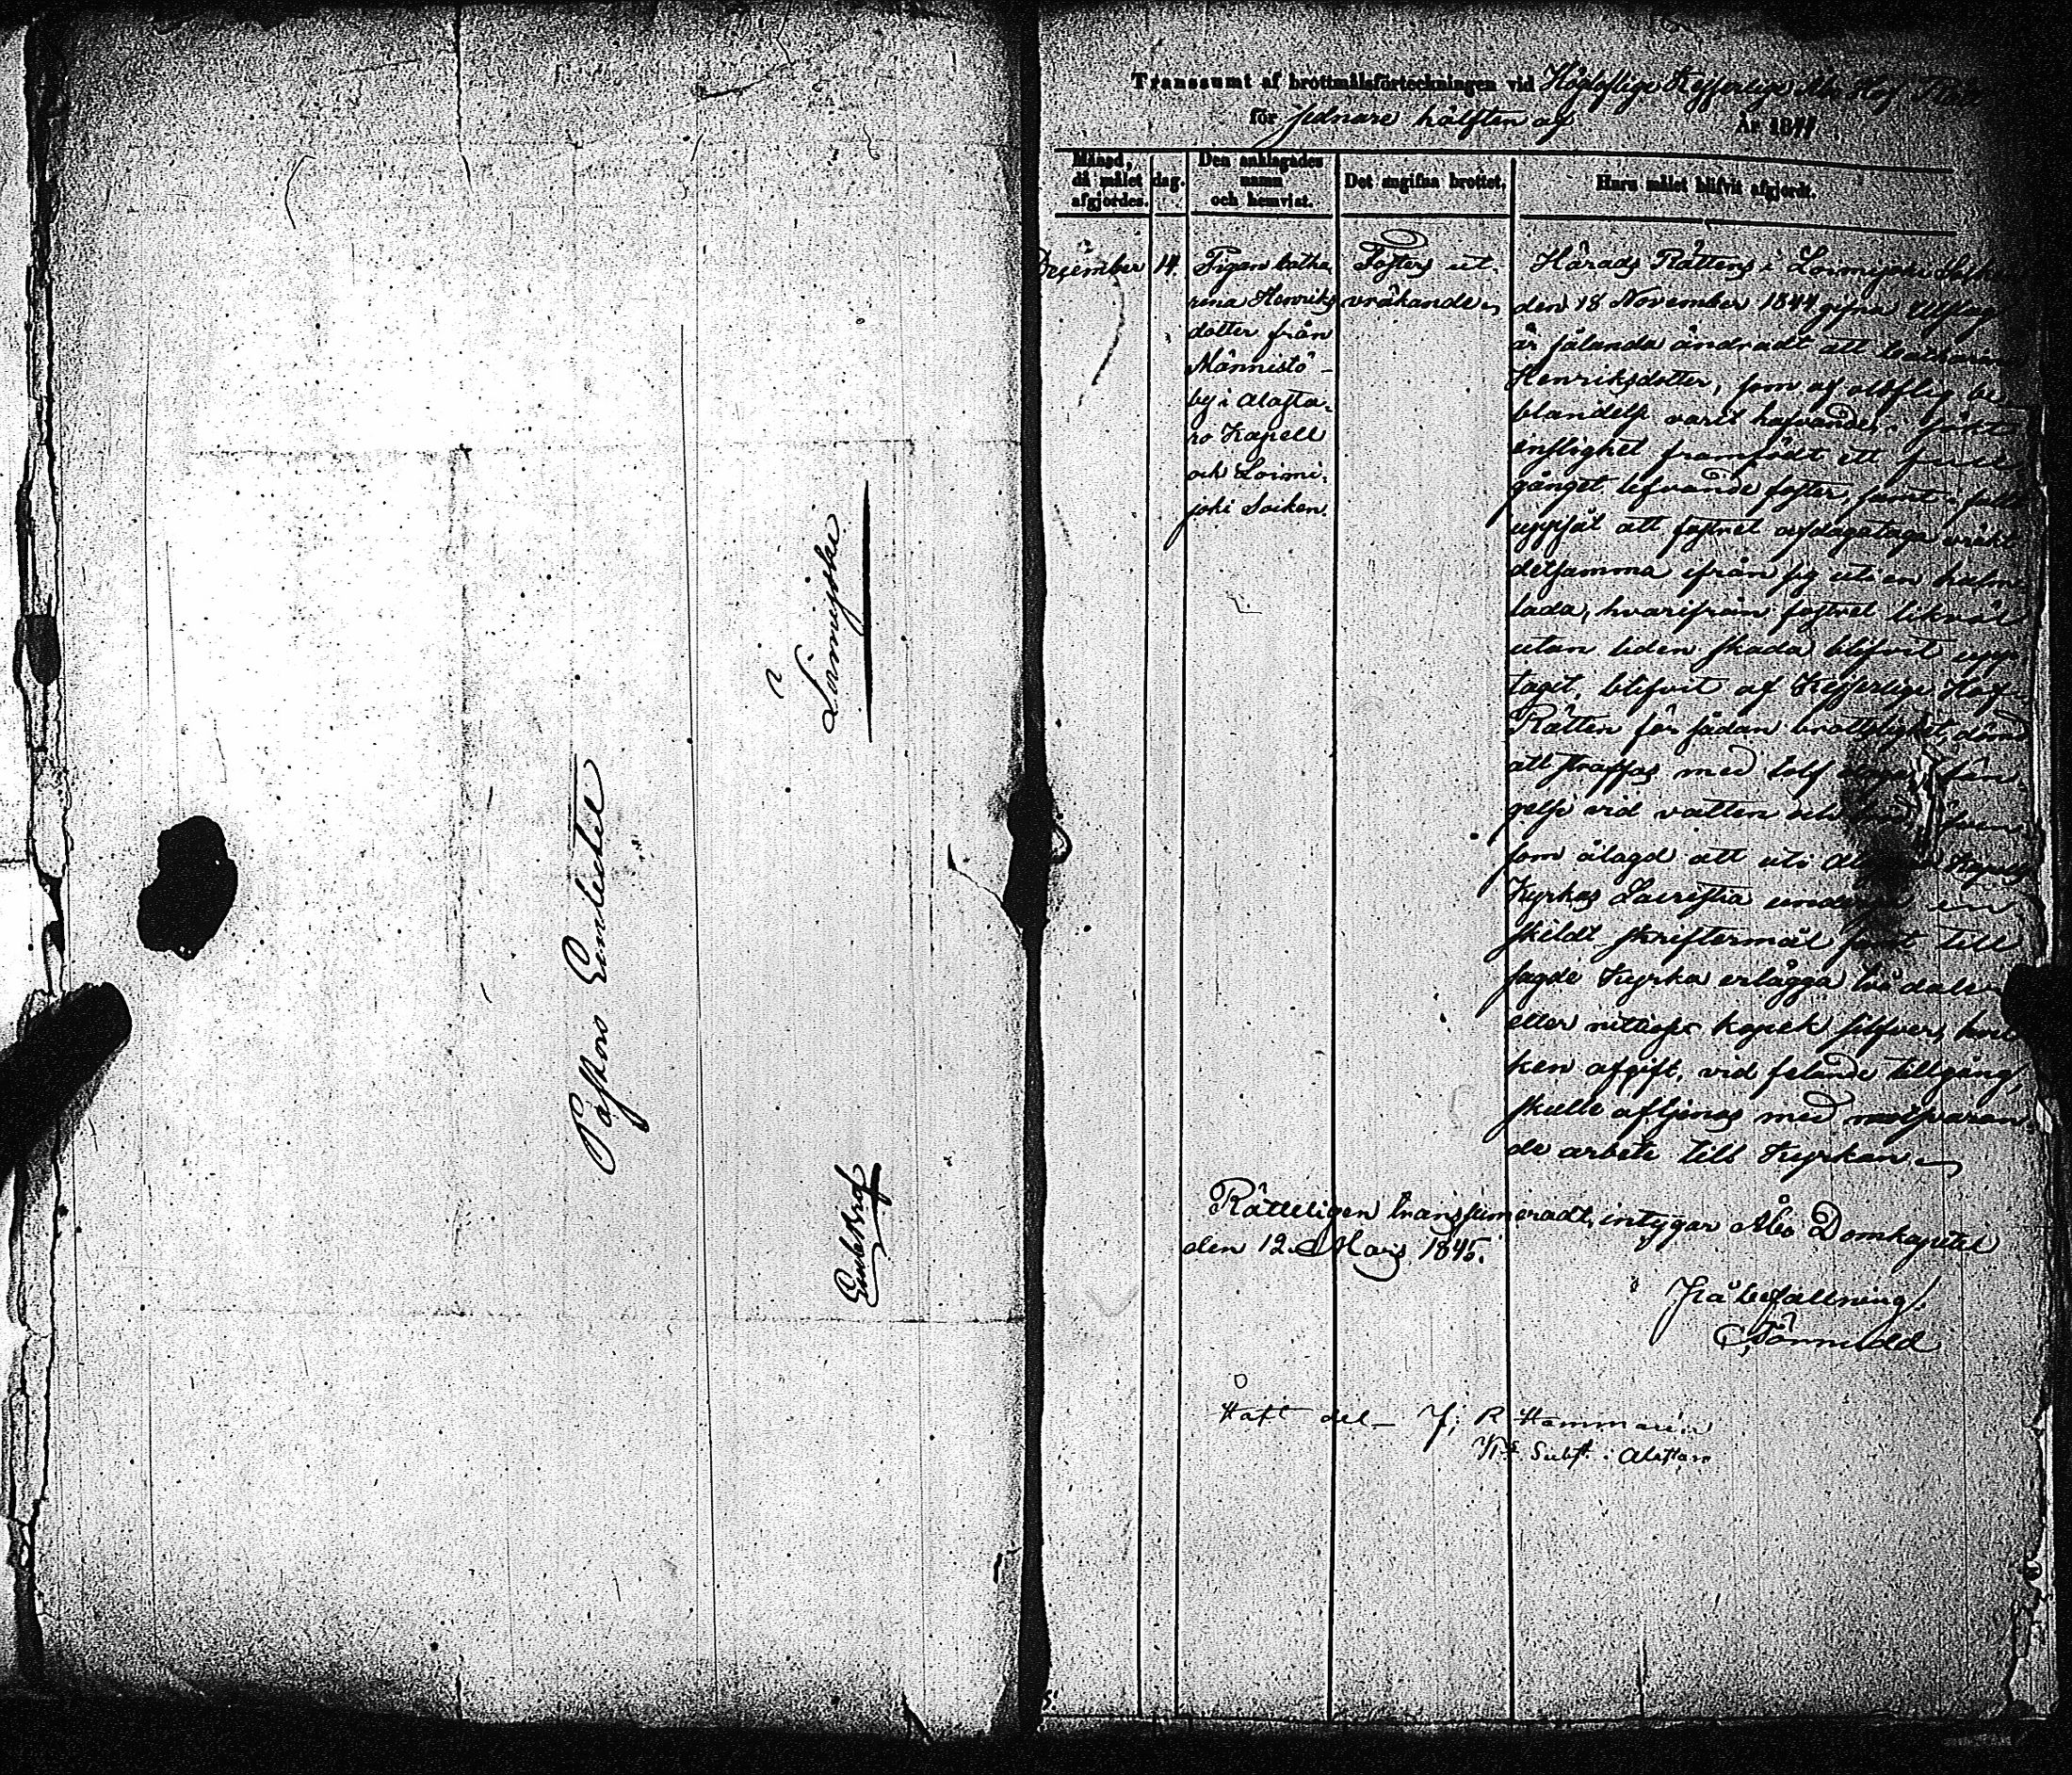 Pastors Embetet
i
Loimijoki
Embetsbref
Transsumt af brottmålsförteckningen vid Högloflige Kejserliga Åbo Hof Rätt
för sednare hälften af År 1844.
Månad, då målet afgjordes.
dag.
Den anklagades namn och hemvist.
Det angifna brottet.
Huru målet blifvit afgjordt.
December
14.
Pigan Catha-
rina Henriks
dotter från
Männistö
by i Alasta-
ro Kapell
och Loimi-
joki Socken.
Fosters ut-
vräkande
Härads Rättens i Loimijoki Sockn
den 18 November 1844 gifna Utslag
är sålunda ändradt att Catharina
Henriksdotter, som af oloflig be-
blandelse varit hafvande, i sökt
enslighet framfödt ett full-
gånget lefvande foster, samt i fullt
uppsåt att fostret afdagataga vräkt
detsamma ifrån sig uti en halm-
lada, hvarifrån fostret likväl
utan liden skada blifvit upp-
taget, blifvit af Kejserliga Hof-
Rätten för sådan brottslighet dömd
att straffas med tolf dagars fän-
gelse vid vatten och bröd, även-
som ålagd att uti Kapells
Kyrkas Sacristia undergå en-
skildt skriftermål samt till
sagde Kyrka erlägga två daler
eller nittiosex kopek silfver, hvil-
ken afgift, vid felande tillgång,
skulle aftjenas med motsvaran-
de arbete till Kyrkan
Rätteligen transsumeradt, intygar Åbo Domkapitel
den 12 Mars 1845.
På befallning.
Haft del
R Hammarin
Subst. i Alastaro